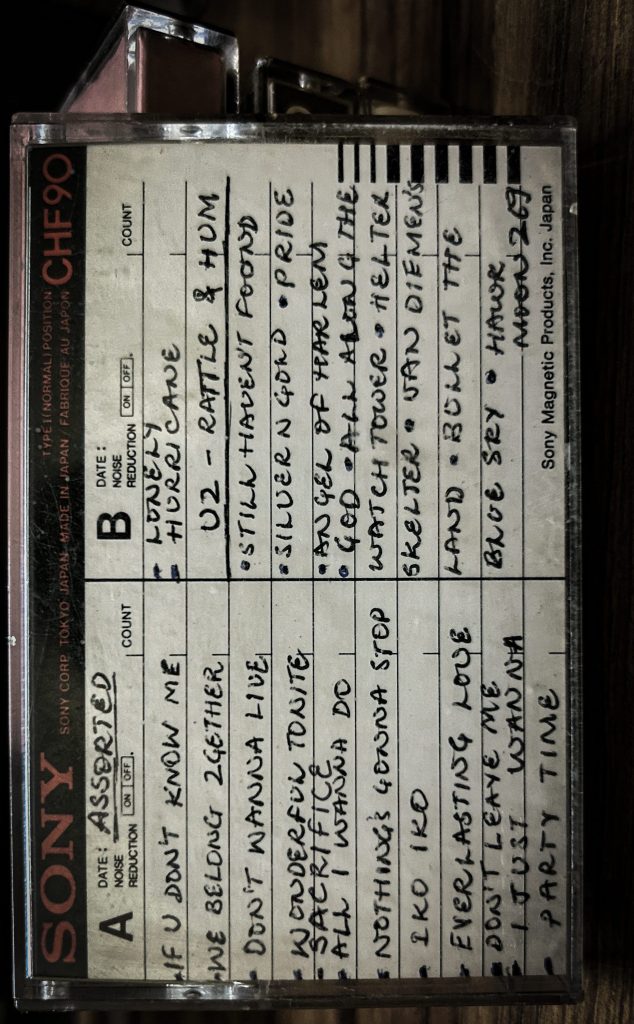 SONY
SONY CORP. TOKYO JAPAN MADE IN JAPAN FABRIQUE AU JAPON
TYPE I (NORMAL) POSITION
CHF90
A
DATE: ASSORTED
NOISE
REDUCTION ON OFF.
COUNT
• IF U DON'T KNOW ME
• WE BELONG 2GETHER
• DON'T WANNA LIVE
• WONDERFUL TONITE
• SACRIFICE
• ALL I WANNA DO
• NOTHING'S GONNA STOP
• IKO IKO
• EVERLASTING LOVE
• DON'T LEAVE ME
• I JUST WANNA
• PARTY TIME
B
DATE:
NOISE
REDUCTION ON OFF.
COUNT
• LONELY
• HURRICANE
U2 - RATTLE & HUM
• STILL HAVENT FOUND
• SILVER N GOLD • PRIDE
• ANGEL OF HARLEM
• GOD • ALL ALONG THE
WATCH TOWER • HELTER
SKELTER • VAN DIEMENS
LAND • BULLET THE
BLUE SKY • HAWK
MOON 269
Sony Magnetic Products, Inc. Japan